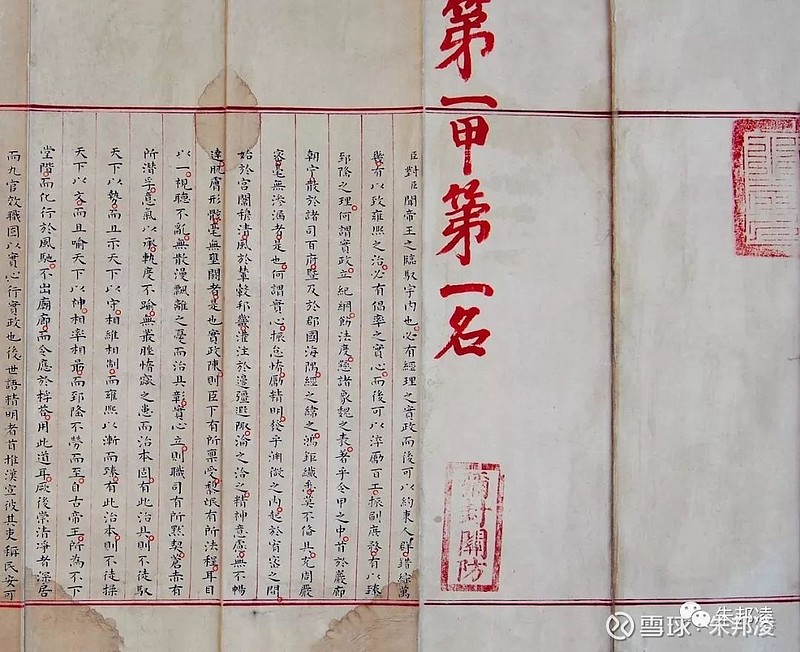 第一甲第一名
彌封關防
臣對臣聞帝王之臨馭宇內也必有經理之實政而後可以約束人群錯綜萬
幾有以致雍熙之治必有倡率之實心而後可以淬勵百工振刷庶務有以臻
郅隆之理何謂實政立紀綱飭法度懸諸象魏之表著乎令甲之中首於嚴廊
朝宁散於諸司百府暨及於郡國海隅經之緯之鴻鉅纖悉莫不備具充周嚴
密毫無滲漏者是也何謂實心振怠惰勵精明發乎淵微之內起於宥密之間
始於宮闈穆清風於輦轂邦畿灌注於邊疆遐陬淪之洽之精神意慮無不暢
達肌膚形骸毫無壅閼者是也實政陳則臣下有所稟受黎氓有所法程耳目
以一視聽不亂無散漫飄離之憂而治具彰實心立則職司有所默契蒼赤有
所潛孚意氣以承軌度不踰無叢脞惰窳之患而治本固有此治具則不徒馭
天下以勢而且示天下以守相維相制而雍熙以漸而臻有此治本則不徒操
天下以文而且喻天下以神相率相勗而郅隆不勞而至自古帝王所為不下
堂階而化行於風馳不出廟廊而令應於桴答用此道耳厥後崇清淨者深居
而九官效職固以實心行實政也後世語精明者首推漢宣彼其吏稱民安可
雪球·朱邦凌
朱邦凌